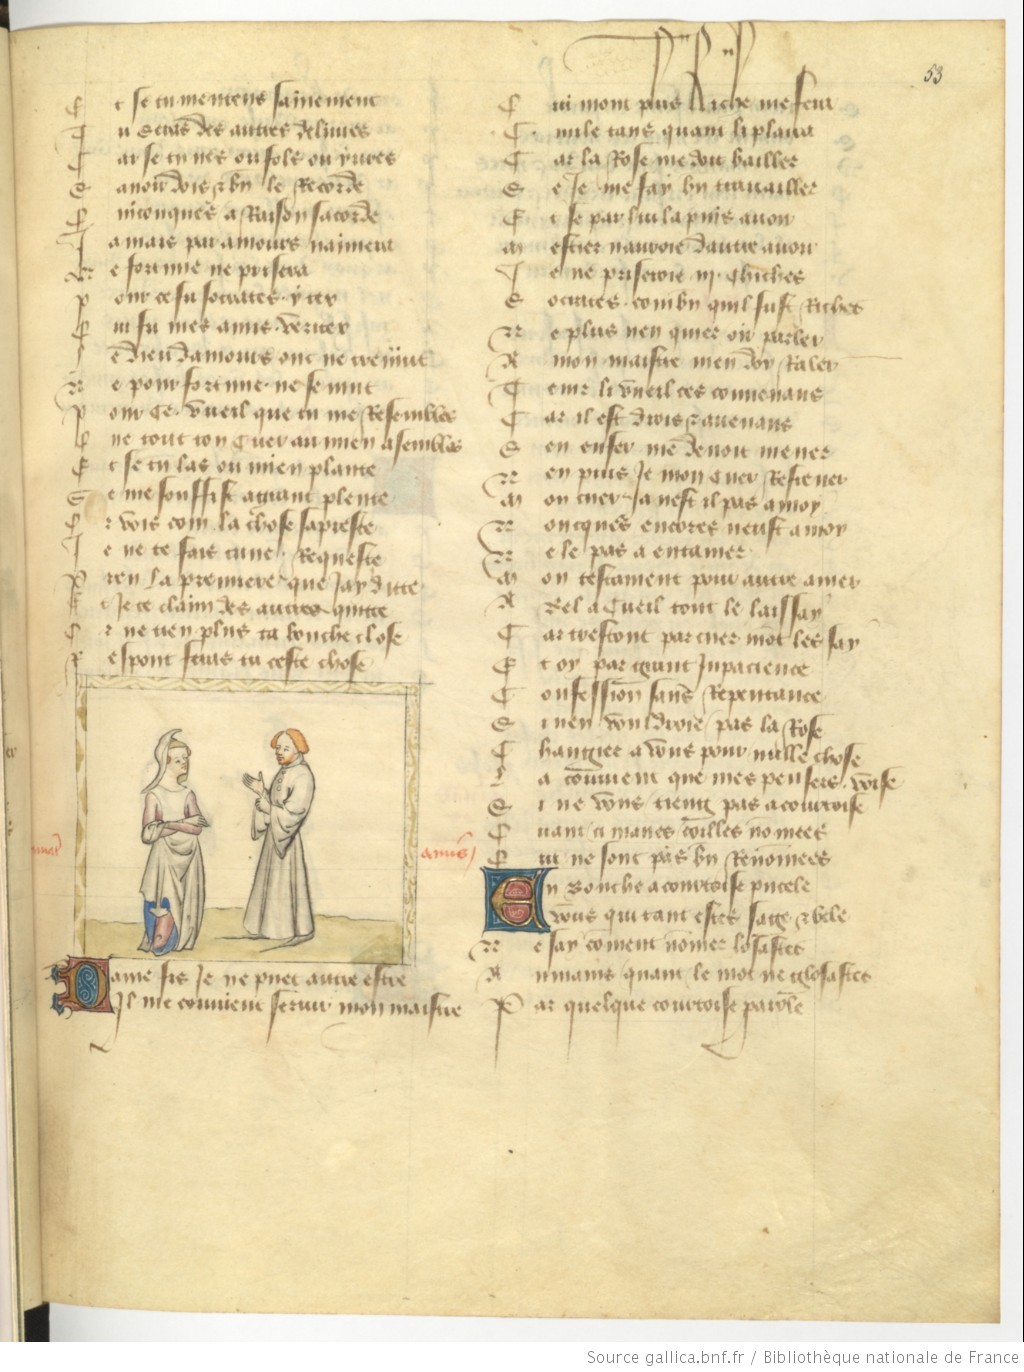 53
E t se tu me tiens sainement
T u seras des autres delivres
C ar se tu n'es ou fols ou yvres
S avoir dois & bn le Recorde
Q uiconques a Raison sacorde
J amais par amours namera
N e fortune ne prisera
P our ce fu socrates ytex
Q ui fu mes amis veritex
L e dieu damours onc ne cremut
N e pour fortune ne se mut
P our ce vueil que tu me Resembles
Q ue tout ton cuer au mien asembles
E t se tu las ou mien plante
C e me souffist a grant plente
O r vois com la chose sapreste
J e ne te fais cune Requeste
P ren la premiere que jay ditte
E t je te claim des autres quitte
O r ne tien plus ta bouche close
R espont feras tu ceste chose
amis
Dame fis je ne puet autre estre
Il me convient servir mon maistre
Q ui mont plus Riche me fera
C mile tans quant li plaira
C ar la Rose me doit bailler
S e Je me say bn travailler
E t se par lui la puis avoir
M estier nauroie dautre avoir
J e ne priseroie iij chiches
S ocrates combn quil fust Riches
N e plus nen quier oir parler
A mon maistre men doy Raler
T enir li vueil ces convenans
C ar il est drois & avenans
S en enfer me devoit mener
N en puis je mon cuer Refrener
M on cuer ja nest il pas a moy
N oncques encores neust a moy
N e le pas a entamer
M on testament pour autre amer
A Bel a Cueil tout le laissay
C ar trestout par cuer mot les say
E t oy par grant Inpacience
C onfession sans Repentance
S i nen vouldroie pas la Rose
C hangier a vous pour nulle chose
L a convient que mes pensers voise
S i ne vous tieng pas a courtoise
Q uant ci maves coilles nomees
Q ui ne sont pas bn Renomees
En bouche a courtoise pucele
Vous qui tant estes sage & bele
N e say coment nomer losastes
A umains quant le mot ne glosastes
P ar quelque courtoise parole
Source gallica.bnf.fr / Bibliothèque nationale de France